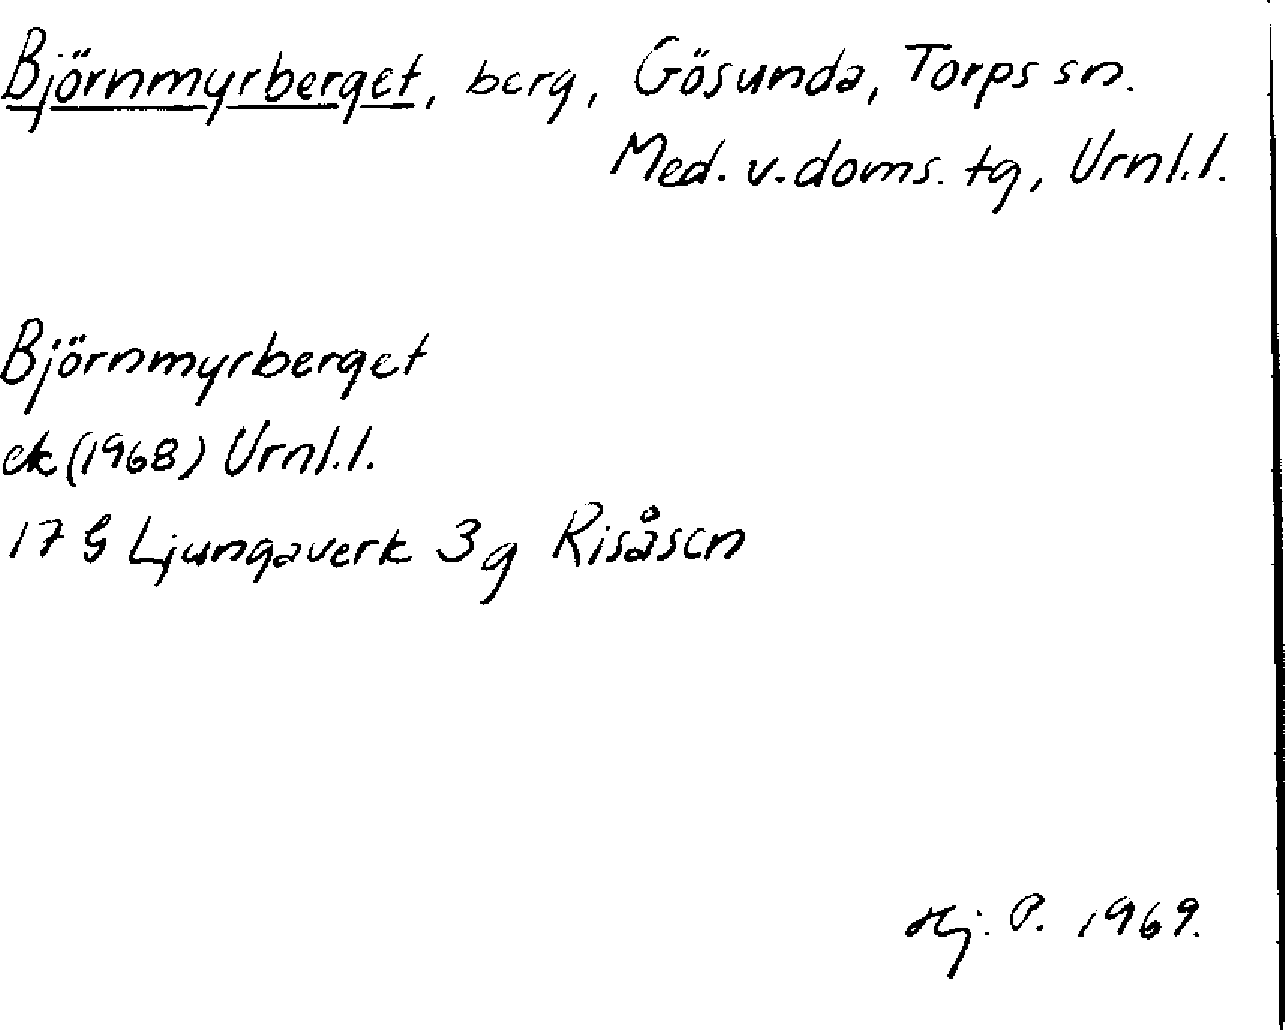 Björnmyrberget, berg, Gösunda, Torps sn.
Med. v. doms. tg, Vrnl.l.
Björnmyrberget
ek (1968) Vrnl.l.
17 G Ljungaverk 3g Risåsen
Hj. P. 1969.